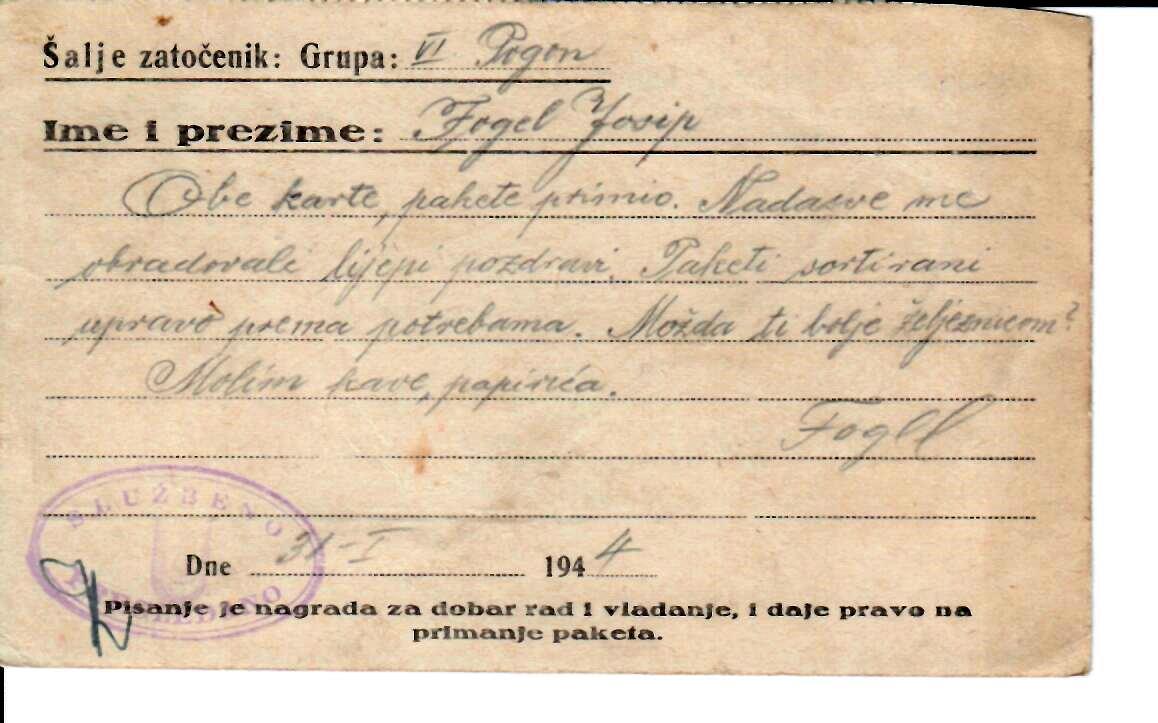 Šalje zatočenik: Grupa: VI Pogon
Ime i prezime: Fogel Josip
Obe karte, pakete primio. Nadasve me
obradovali lijepi pozdravi. Paketi sortirani
upravo prema potrebama. Možda ti bolje željeznicom?
Molim kave, papirića.
Fogel
SLUŽBENO
Dne 31-I 1944
PREGLEDANO
Pisanje je nagrada za dobar rad i vladanje, i daje pravo na
primanje paketa.